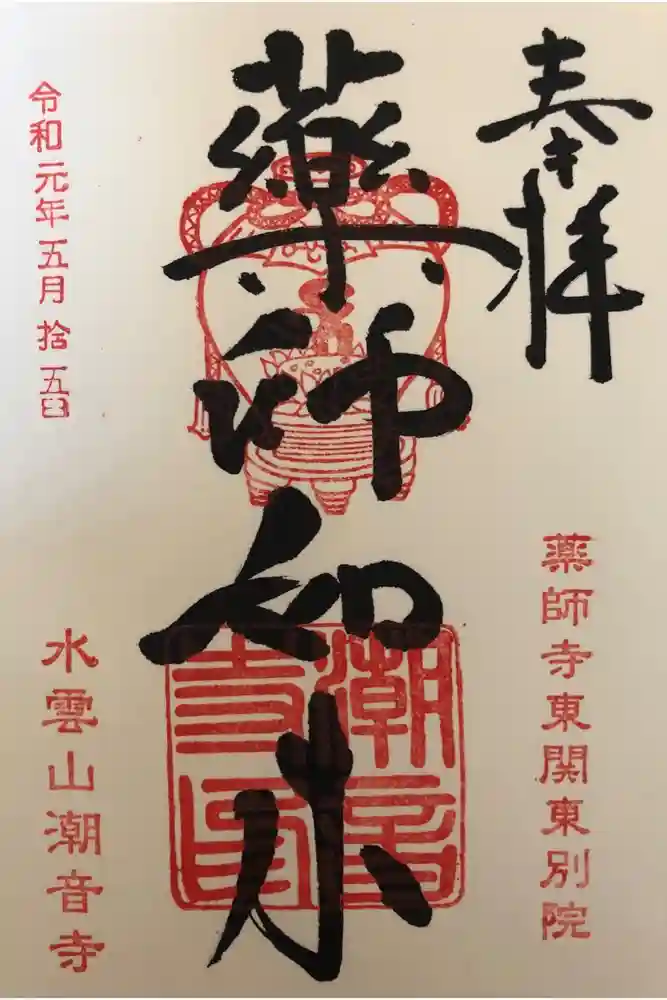 奉拝
薬師寺東関東別院
薬師如来
潮音
寺印
令和元年五月拾五日
水雲山潮音寺